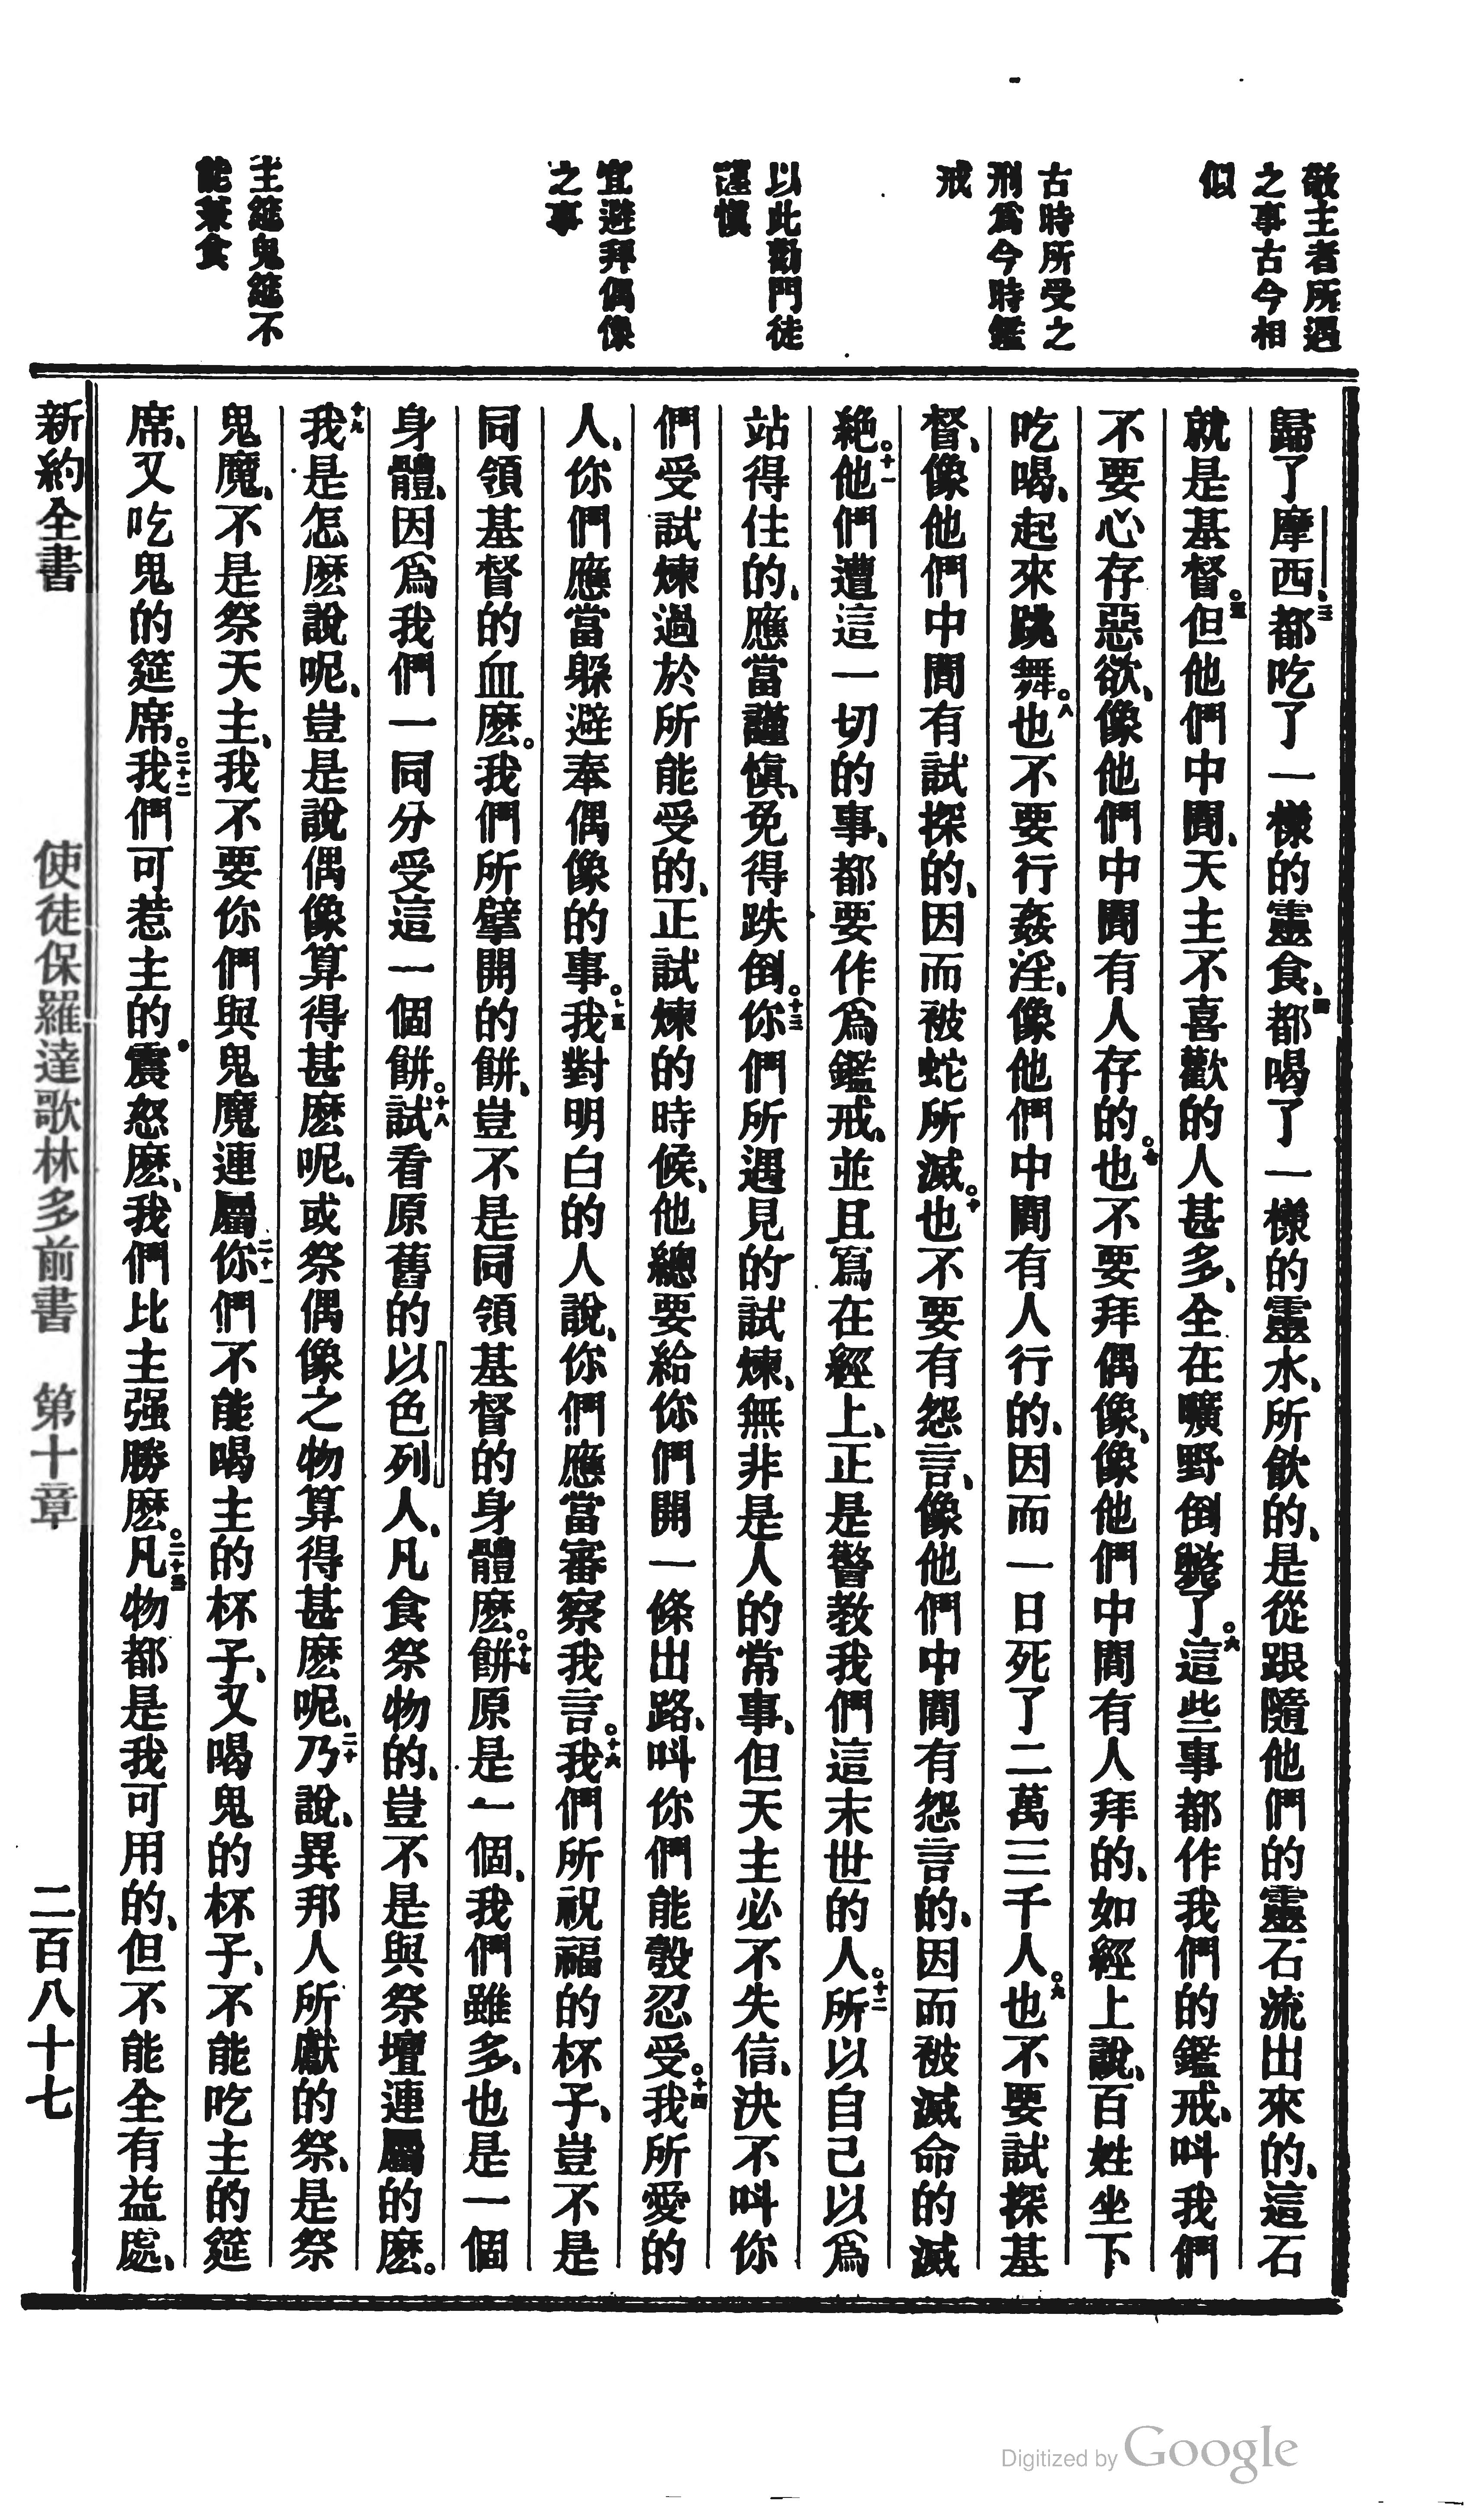 敬主者所遇
之事古今相
似
古時所受之
刑爲今時鑑
戒
以此勸門徒
謹愼
宜避拜偶像
之事
主筵鬼筵不
能兼食
歸了摩西、三都吃了一樣的靈食、四都喝了一樣的靈水、所飲的、是從跟隨他們的靈石流出來的、這石
就是基督。五但他們中間、天主不喜歡的人甚多、全在曠野倒斃了。六這些事都作我們的鑑戒、呌我們
不要心存惡欲、像他們中間有人存的。七也不要拜偶像、像他們中間有人拜的、如經上說、百姓坐下
吃喝、起來跳舞。八也不要行姦淫、像他們中間有人行的、因而一日死了二萬三千人。九也不要試探基
督、像他們中間有試探的、因而被蛇所滅。十也不要有怨言、像他們中間有怨言的、因而被滅命的滅
絶。十一他們遭這一切的事、都要作爲鑑戒、並且寫在經上、正是警教我們這末世的人。十二所以自己以爲
站得住的、應當謹愼、免得跌倒。十三你們所遇見的試煉、無非是人的常事、但天主必不失信、決不呌你
們受試煉過於所能受的、正試煉的時候、他總要給你們開一條出路、呌你們能彀忍受。十四我所愛的
人、你們應當躱避奉偶像的事。十五我對明白的人說、你們應當審察我言。十六我們所祝福的杯子、豈不是
同領基督的血麽。我們所擘開的餅、豈不是同領基督的身體麽。十七餅原是一個、我們雖多、也是一個
身體、因爲我們一同分受這一個餅。十八試看原舊的以色列人、凡食祭物的、豈不是與祭壇連屬的麽。
十九我是怎麽說呢、豈是說偶像算得甚麽呢、或祭偶像之物算得甚麽呢、二十乃說、異邦人所獻的祭、是祭
鬼魔、不是祭天主、我不要你們與鬼魔連屬二十一你們不能喝主的杯子、又喝鬼的杯子、不能吃主的筵
席、又吃鬼的筵席。二十二我們可惹主的震怒麽、我們比主强勝麽。二十三凡物都是我可用的、但不能全有益處、
新約全書 使徒保羅達歌林多前書 第十章 二百八十七
Digitized by Google